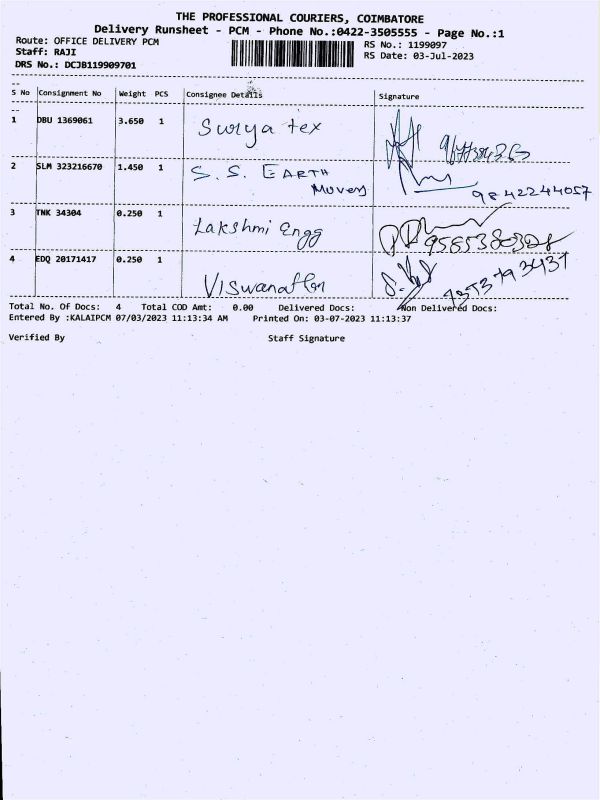 THE PROFESSIONAL COURIERS, COIMBATORE
Delivery Runsheet - PCM - Phone No.:0422-3505555 - Page No.:1
Route: OFFICE DELIVERY PCM RS No.: 1199097
Staff: RAJI RS Date: 03-Jul-2023
DRS No.: DCJB119909701
S No Consignment No Weight PCS Consignee Details Signature
1 DBU 1369061 3.650 1 Surya tex
2 SLM 323216670 1.450 1 S. S. EARTH
MOVERS 9842244057
3 TNK 34304 0.250 1 Lakshmi Engg
4 EDQ 20171417 0.250 1 Viswanathan
Total No. Of Docs: 4 Total COD Amt: 0.00 Delivered Docs: Non Delivered Docs:
Entered By :KALAIPCM 07/03/2023 11:13:34 AM Printed On: 03-07-2023 11:13:37
Verified By Staff Signature